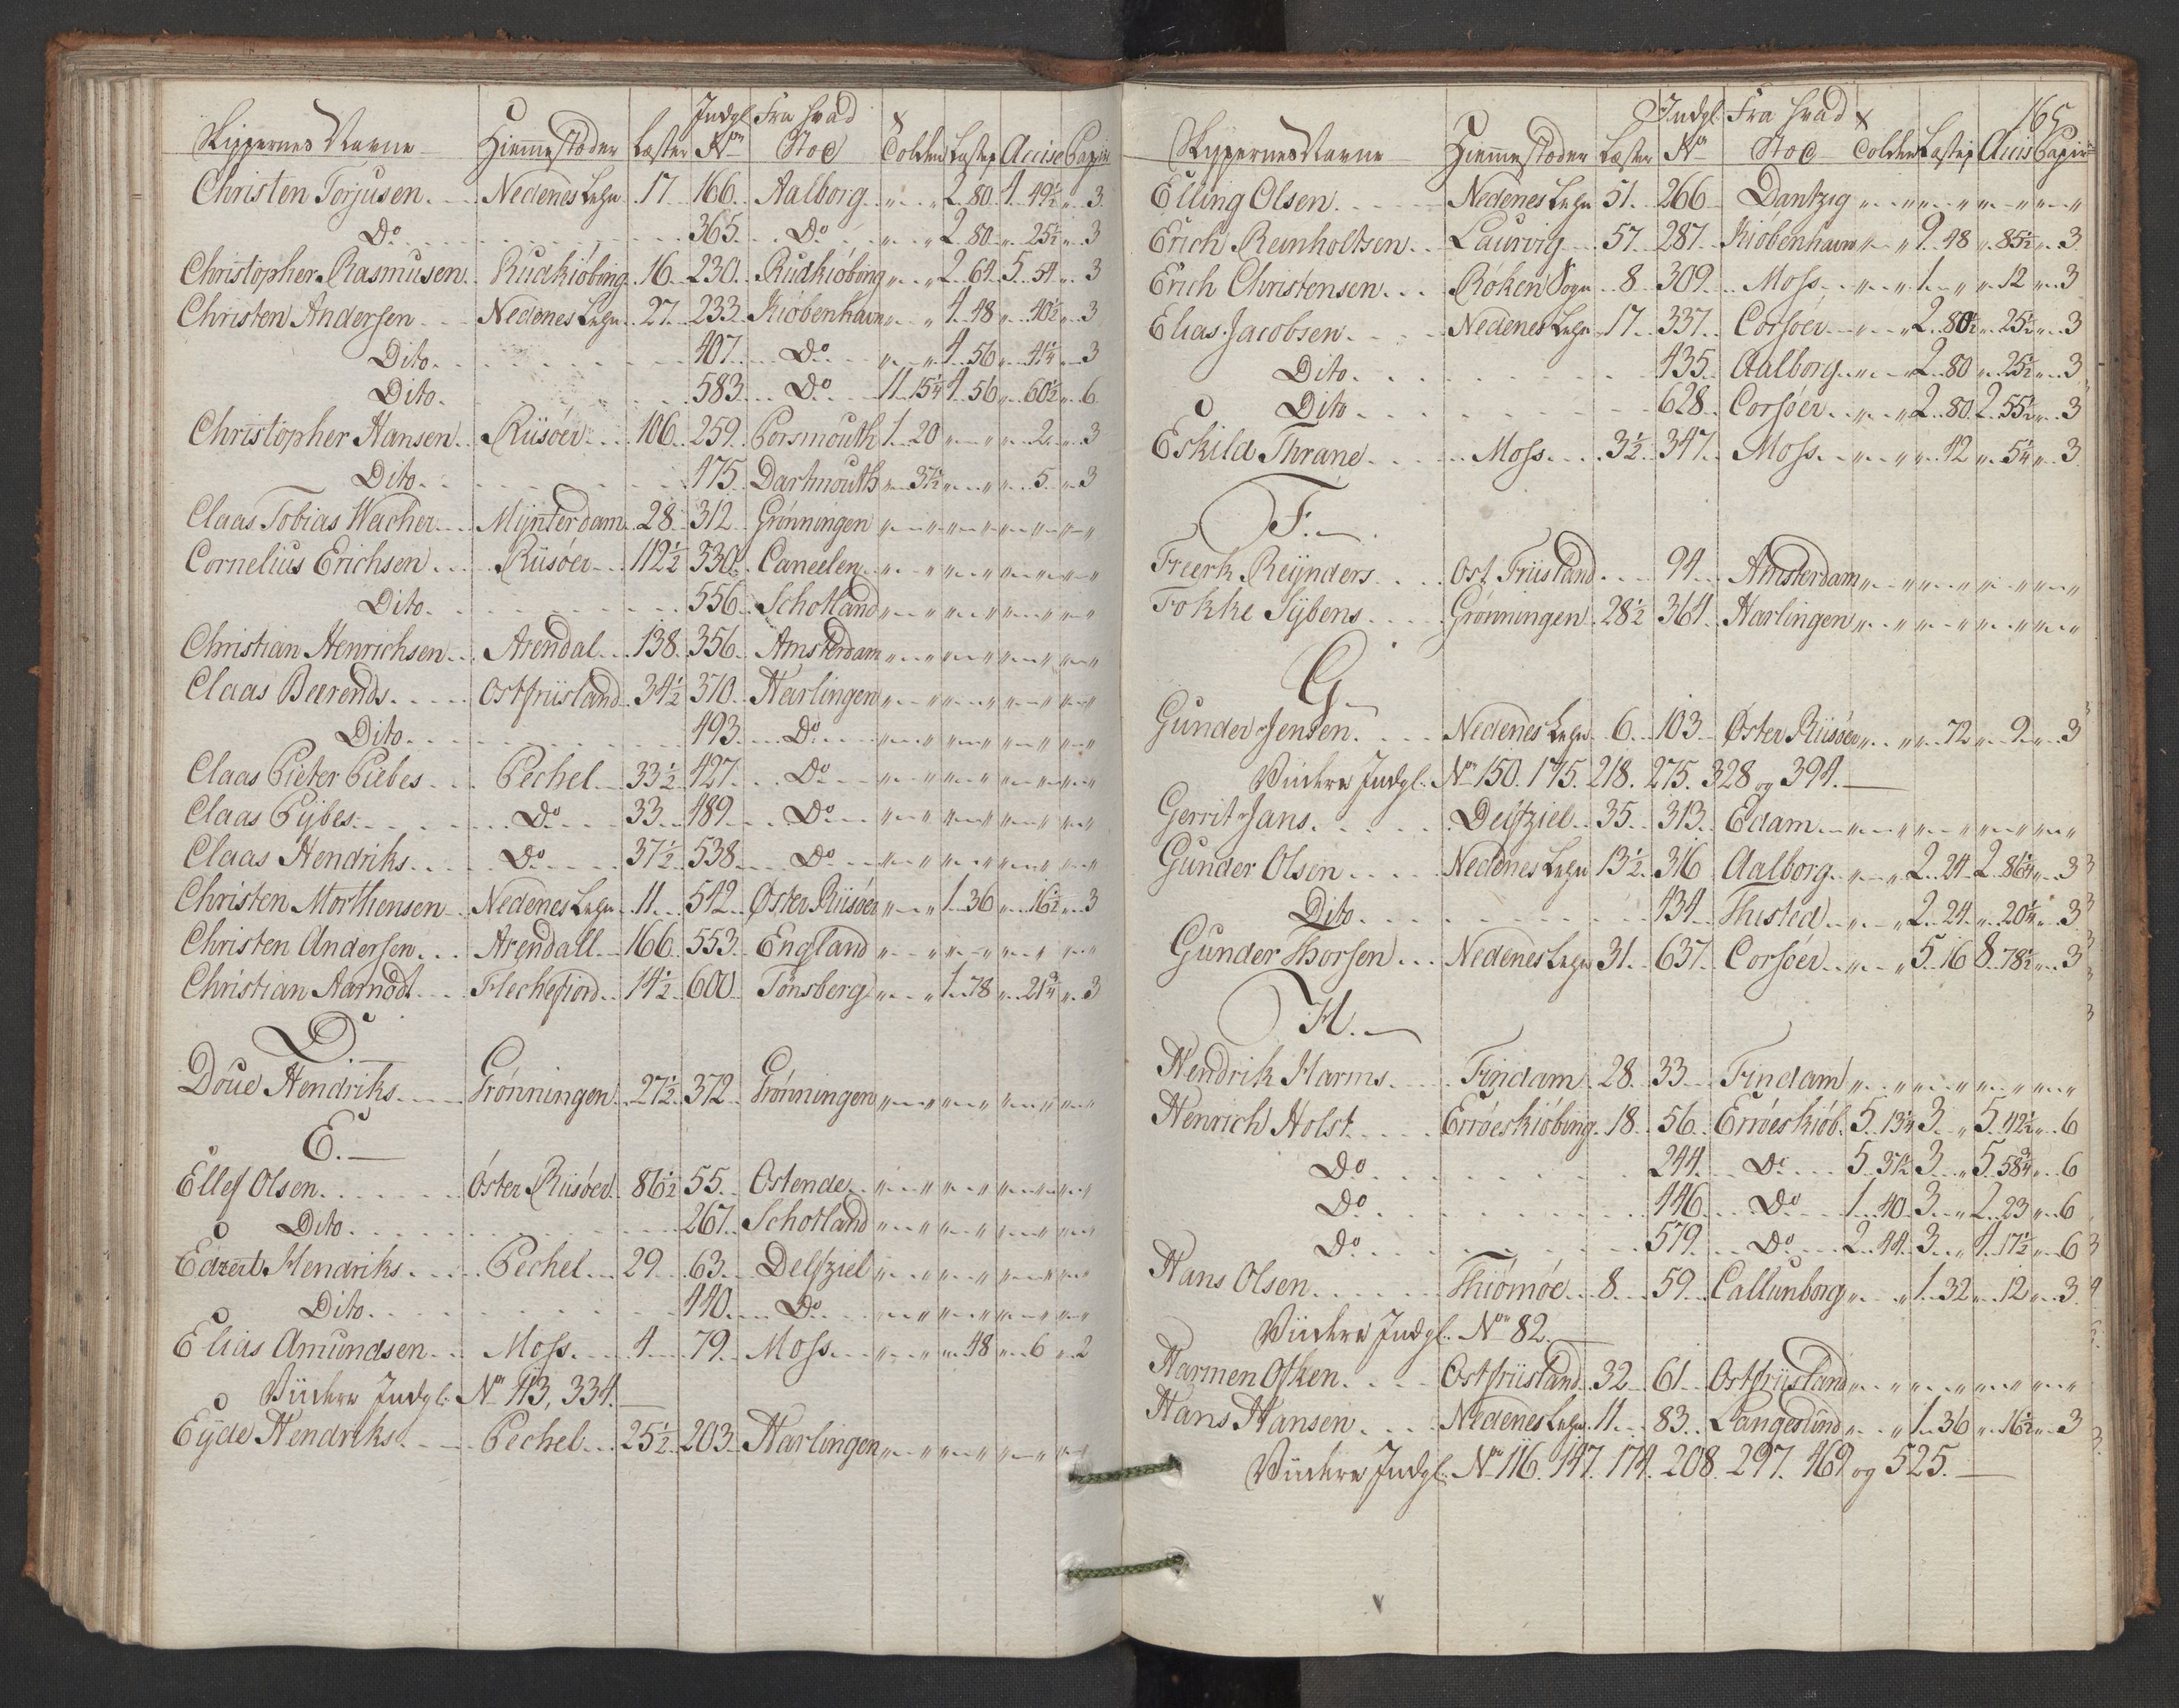 Skippernes Navne Hiemmestæder Læster Indgl. No Fra hvad Stæd Tolden Lastep Accise Papir
Christen Torjusen Nedenes Lehn 17 166 Aalborg " " 2 80 1 49½ " 3
Do 365 Do " " 2 80 " 25½ " 3
Christopher Rasmusen Rudkiøbing 16 230 Rudkiøbing " " 2 64 5 54 " 3
Christen Andersen Nedenes Lehn 27 233 Kiøbenhavn " " 4 48 " 40½ " 3
Dito 407 Do " " 4 56 " 41¼ " 3
Dito 583 Do 11 15¼ 4 56 " 60½ " 6
Christopher Hansen Riisøer 106 259 Porsmouth 1 20 " " " 2 " 3
Dito 475 Dartmouth " 37½ " " " 5 " 3
Claas Tobias Wacher Mÿnterdam 28 312 Grønningen " " " " " " " "
Cornelius Erichsen Riisøer 112½ 330 Caneelen " " " " " " " "
Dito 556 Schotland " " " " " " " "
Christian Henrichsen Arendal 138 356 Amsterdam " " " " " " " "
Claas Beerends Ostfriisland 34½ 370 Harlingen " " " " " " " "
Dito 493 Do " " " " " " " "
Claas Pieter Piebes Pechel 33½ 427 Do " " " " " " " "
Claas Pÿbes Do 33 489 Do " " " " " " " "
Claas Hendriks Do 37½ 538 Do " " " " " " " "
Christen Morthensen Nedenes Lehn 11 542 Øster Riisøer " " 1 36 " 16½ " 3
Christen Andersen Arendall 166 553 England " " " " " " " "
Christian Aarnodt Flechefiord 14½ 600 Tønsberg " " 1 78 " 21¾ " 3
D.
Doue Hendriks Grønningen 27½ 372 Grønningen " " " " " " " "
E.
Ellef Olsen Øster Riisøer 86½ 55 Ostende " " " " " " " "
Dito 267 Schotland " " " " " " " "
Edzert Hendriks Pechel 29 63 Delfziel " " " " " " " "
Dito 440 Do " " " " " " " "
Elias Amundsen Moss 4 79 Moss " " " 48 " 6 " 2
Viidere Indgl. No 113, 334.
Eÿde Hendriks Pechel 25½ 203 Harlingen " " " " " " " "
165
Skippernes Navne Hiemmestæder Læster Indgl. No Fra hvad Stæd Tolden Lastep Accis Papir
Elling Olsen Nedenes Lehn 51 266 Dantzig " " " " " " " "
Erich Reinholtsen Laurvig 57 287 Kiøbenhavn " " 9 48 " 85½ " 3
Erich Christensen Røken Sogn 8 309 Moss " " 1 " " 12 " 3
Elias Jacobsen Nedenes Lehn 17 337 Corsøer " " 2 80½ " 25½ " 3
Dito 435 Aalborg " " 2 80 " 25½ " 3
Dito 628 Corsøer " " 2 80 2 55½ " 3
Eskild Thrane Moss 3½ 347 Moss " " " 42 " 5¼ " 3
F.
Freerk Reÿnders Ost Friisland 94 Amsterdam " " " " " " " "
Fokke Sÿbens Grønningen 28½ 364 Harlingen " " " " " " " "
G.
Gunder Jensen Nedenes Lehn 6 103 Øster Riisøer " " " 72 " 9 " 3
Viidere Indgl. No 150. 175. 218. 275. 328 og 394.
Gerrit Jans Delfziel 35 313 Edam " " " " " " " "
Gunder Olsen Nedenes Lehn 13½ 316 Aalborg " " 2 24 2 86¼ " 3
Dito 434 Thisted " " 2 24 " 20¼ " 3
Gunder Thorsen Nedenes Lehn 31 637 Corsøer " " 5 16 8 78½ " 3
H.
Hendrik Harms Findam 28 33 Findam " " " " " " " "
Henrich Holst Erröeskiöbing 18 56 Erröeskiöb. 5 13¼ 3 " 5 42½ " 6
Do 244 Do 5 31½ 3 " 5 58¾ " 6
Do 446 Do 1 40 3 " 2 23 " 6
Do 579 Do 2 44 3 " 4 17½ " 6
Hans Olsen Thiómóe 8 59 Callunborg " " 1 32 " 12 " 3
Viidere Indgl. No 82.
Harmen Ofken Ostfriisland 32 61 Ostfriisland " " " " " " " "
Hans Hansen Nedenes Lehn 11 83 Langesund " " 1 36 " 16½ " 3
Viidere Indgl. No 116. 147. 174. 208. 297. 469 og 525.